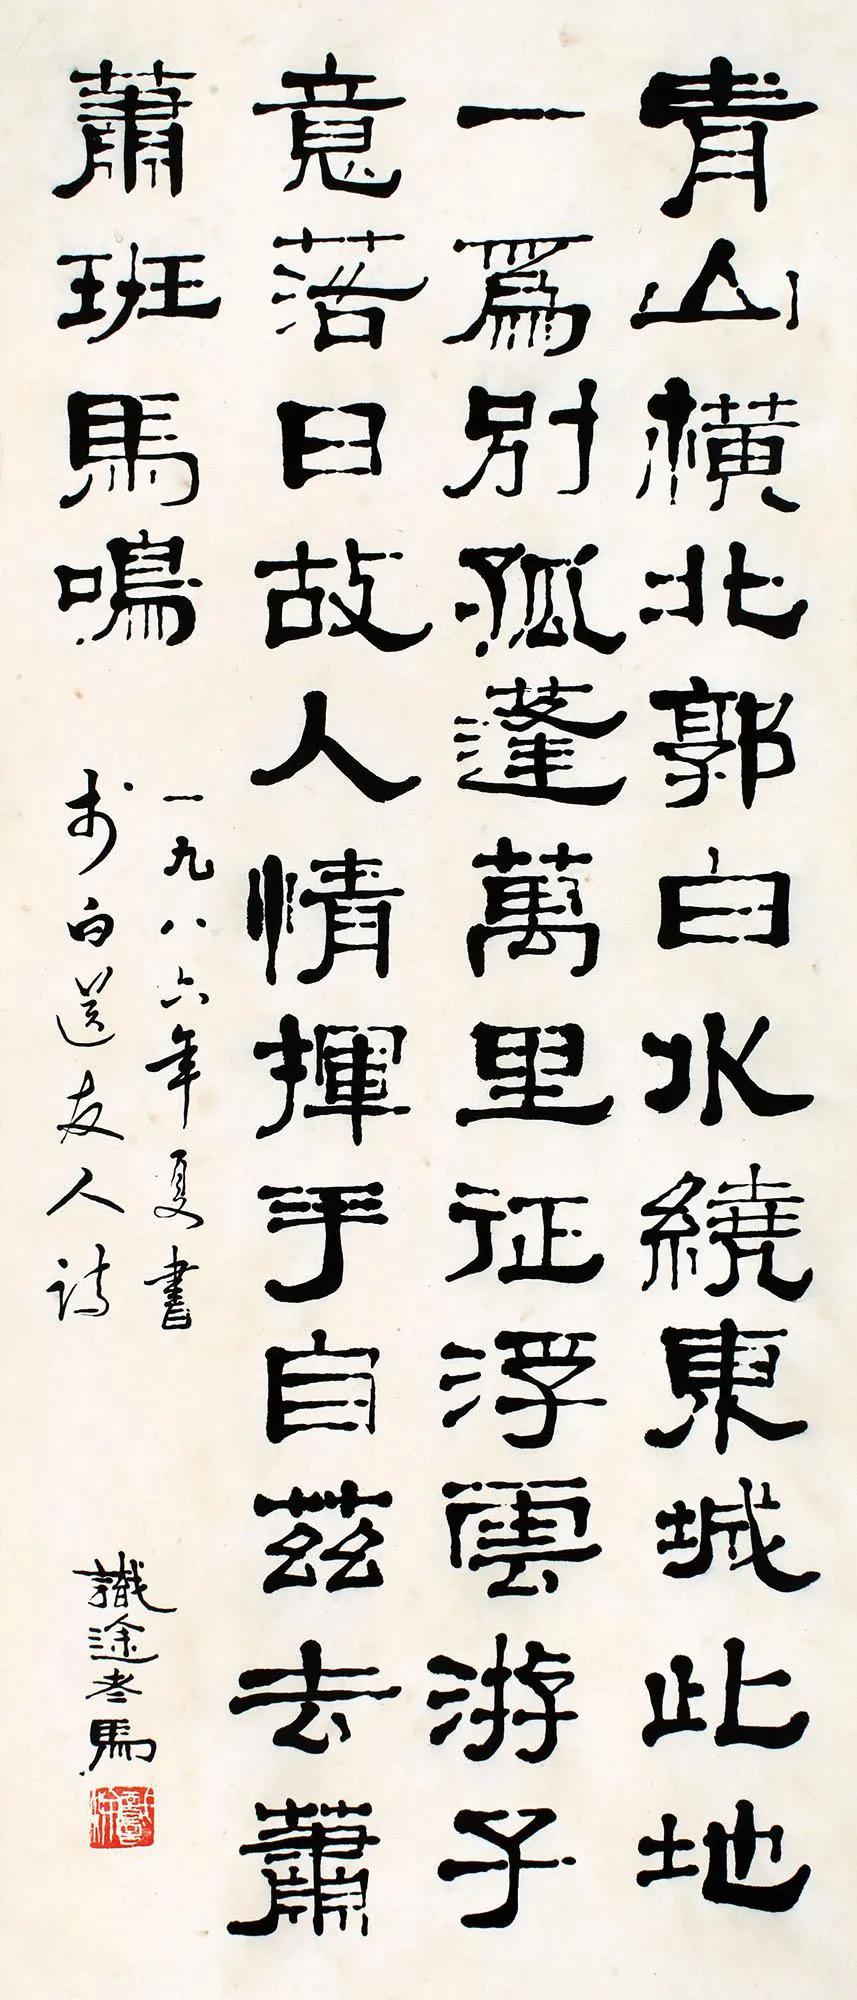 青山橫北郭白水繞東城此地
一爲別孤蓬萬里征浮雲游子
意落日故人情揮手自茲去蕭
蕭班馬鳴
一九八六年夏書
李白送友人詩
識途老馬